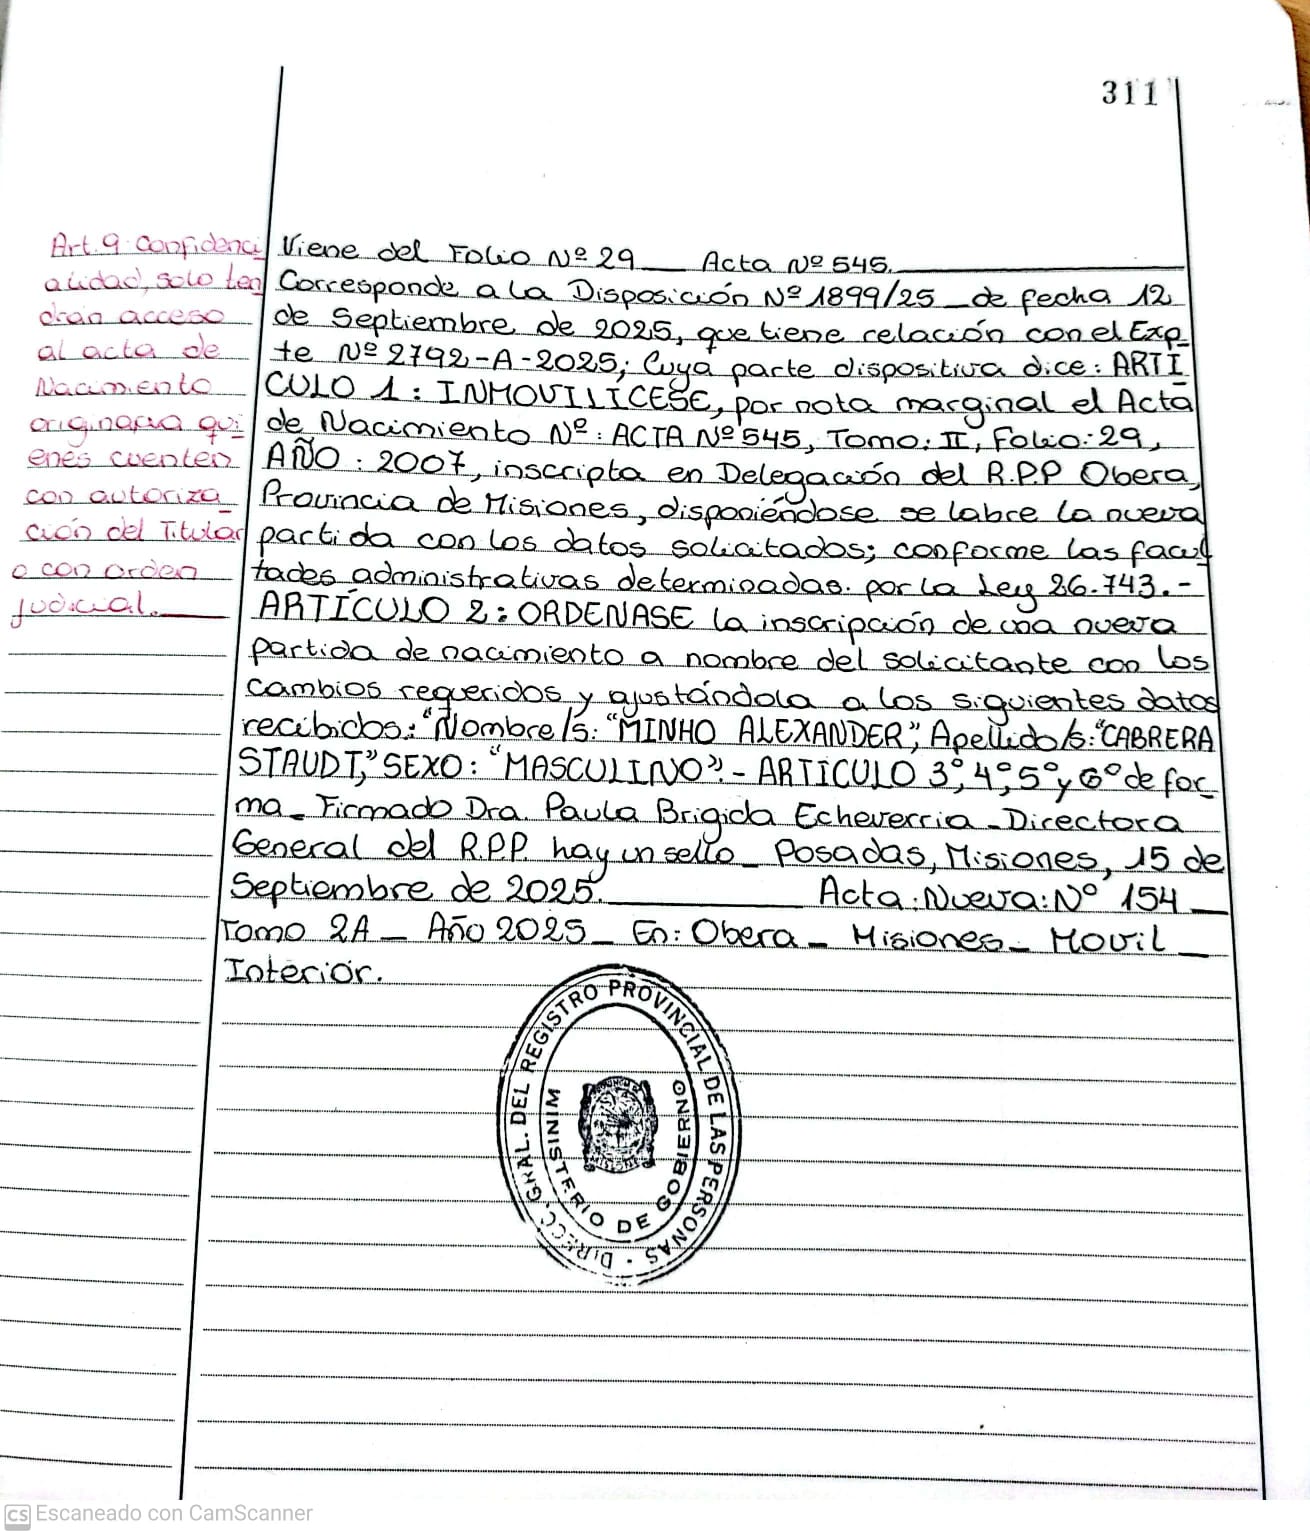 311
Art. 9 Confidenci
alidad, solo ten
drán acceso
al acta de
Nacimiento
originaria qui
enes cuenten
con autoriza
ción del Titular
o con orden
judicial.
Viene del Folio Nº 29 Acta Nº 545.
Corresponde a la Disposición Nº 1899/25 _ de fecha 12
de Septiembre de 2025, que tiene relación con el Exp_
te Nº 2792-A-2025; Cuya parte dispositiva dice: ARTI
CULO 1: INMOVILICESE, por nota marginal el Acta
de Nacimiento Nº: ACTA Nº 545, Tomo: II, Folio: 29,
AÑO: 2007, inscripta en Delegación del R.P.P Obera,
Provincia de Misiones, disponiéndose se labre la nueva
partida con los datos solicitados; conforme las facul
tades administrativas determinadas. por la Ley 26.743.-
ARTÍCULO 2: ORDENASE la inscripción de una nueva
partida de nacimiento a nombre del solicitante con los
cambios requeridos y ajustándola a los siguientes datos
recibidos: "Nombre/s: "MINHO ALEXANDER", Apellido/s: "CABRERA
STAUDT," SEXO: "MASCULINO".- ARTICULO 3º, 4º, 5º y 6º de for_
ma_ Firmado Dra. Paula Brigida Echeverria - Directora
General del R.P.P. hay un sello_ Posadas, Misiones, 15 de
Septiembre de 2025. Acta: Nueva: Nº 154 _
Tomo 2A _ Año 2025 _ En: Obera _ Misiones _ Movil _
Interior.
DIRECC. GRAL. DEL REGISTRO PROVINCIAL DE LAS PERSONAS
MINISTERIO DE GOBIERNO
CS Escaneado con CamScanner